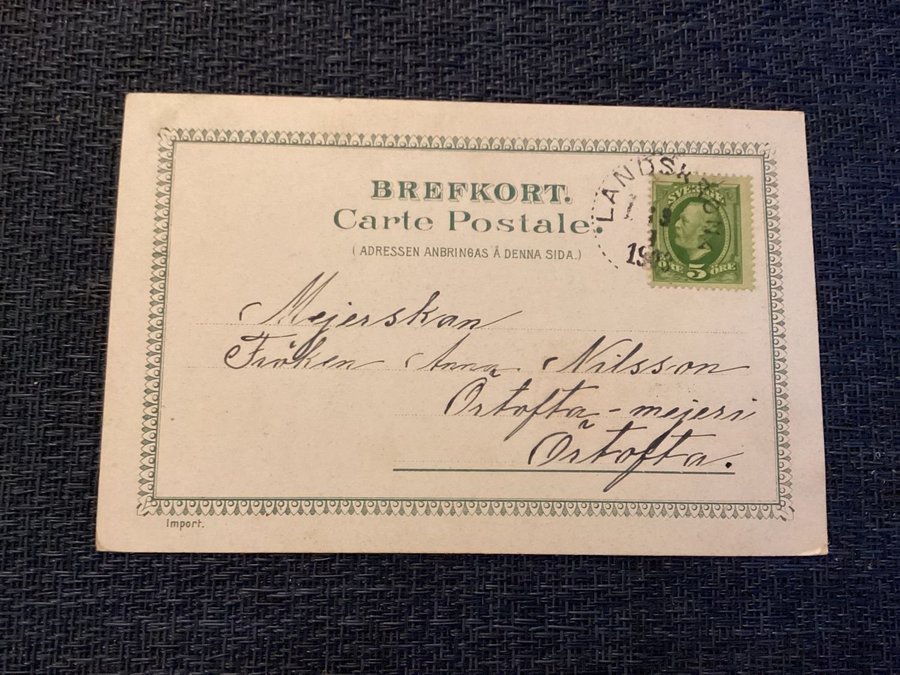 BREFKORT.
Carte Postale.
(ADRESSEN ANBRINGAS Å DENNA SIDA.)
LANDSKRONA
SVERIGE
5 ÖRE
Mejerskan
Fröken Anna Nilsson
Örtofta-mejeri
Örtofta.
Import.